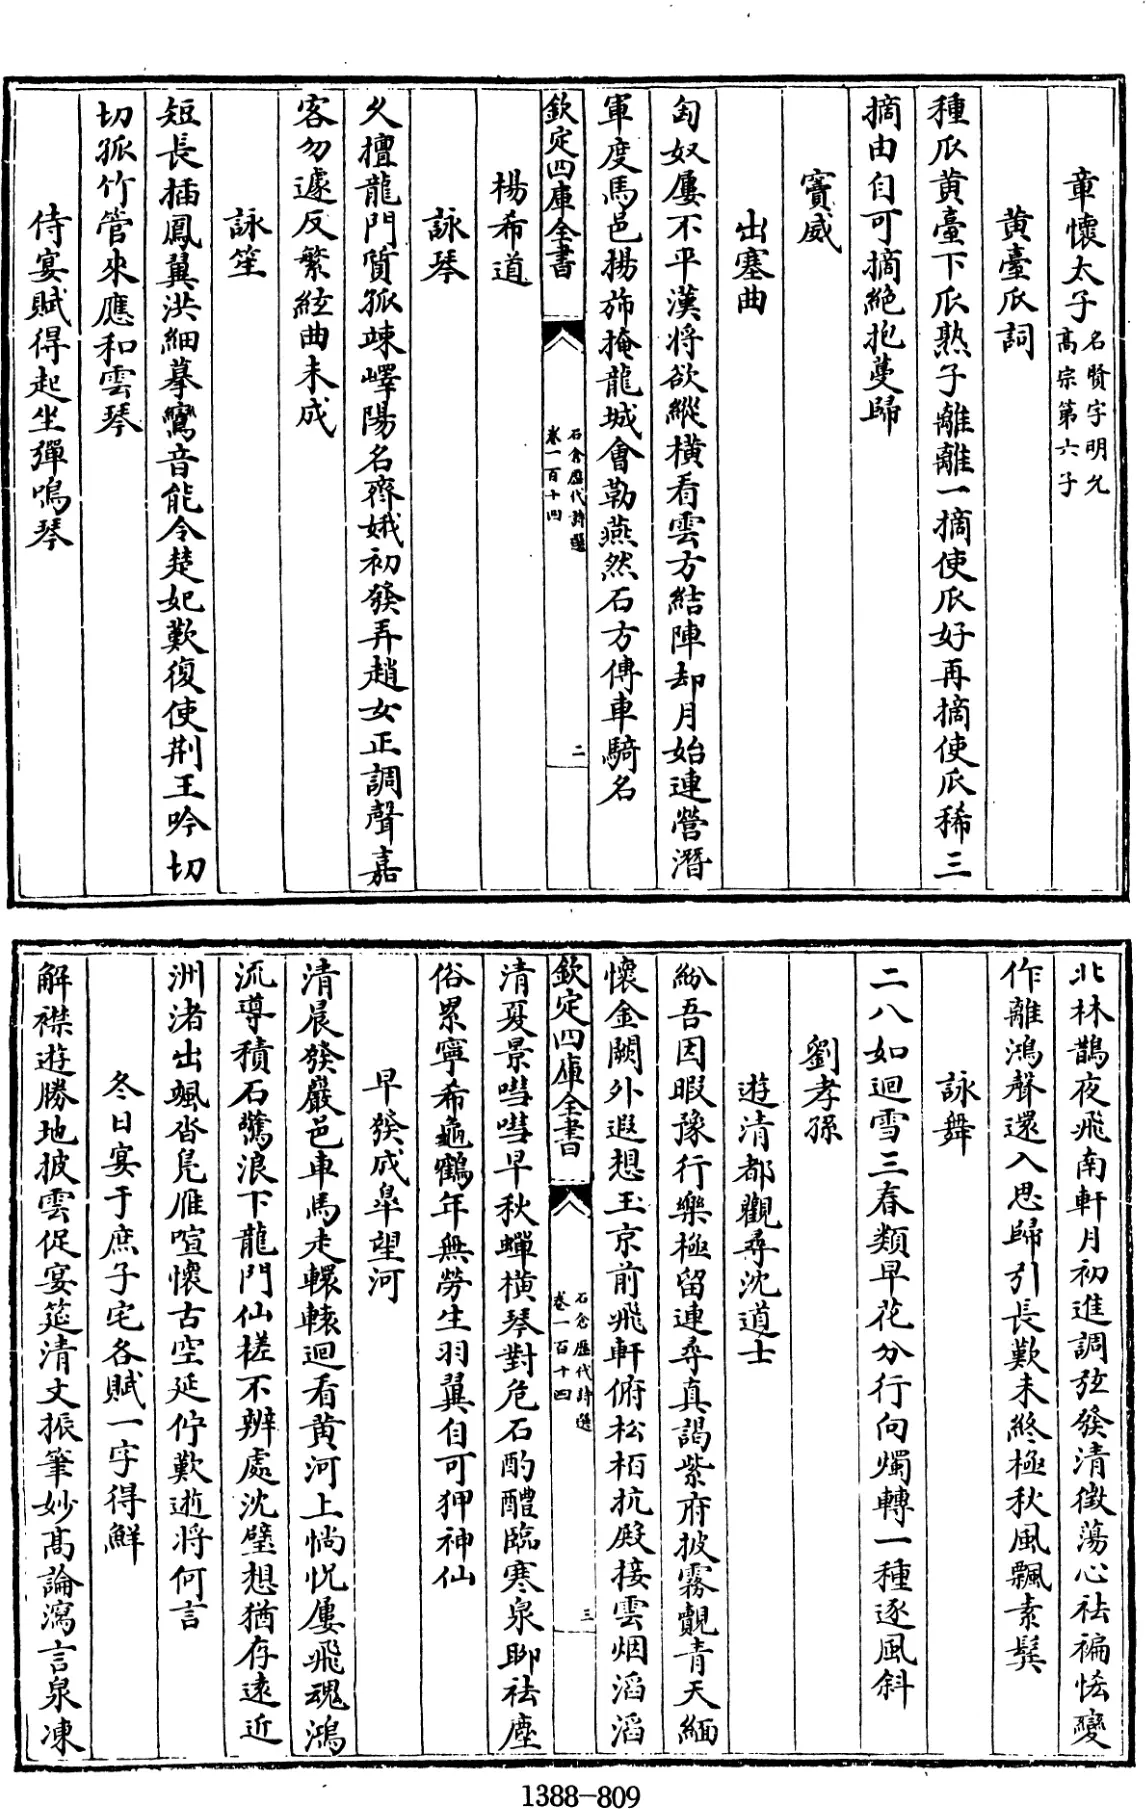 章懷太子名賢字明允高宗第六子
黄臺瓜詞
種瓜黄臺下瓜熟子離離一摘使瓜好再摘使瓜稀三
摘由自可摘絶抱蔓歸
竇威
出塞曲
匈奴屢不平漢將欲縱横看雲方結陣却月始連營潛
軍度馬邑揚斾掩龍城會勒燕然石方傳車騎名
欽定四庫全書
石倉歷代詩選
卷一百十四
二
楊希道
詠琴
久擅龍門質孤竦嶧陽名齊娥初發弄趙女正調聲嘉
客勿遽反繁絃曲未成
詠笙
短長插鳳翼洪細摹鸞音能令楚妃歎復使荆王吟切
切孤竹管來應和雲琴
侍宴賦得起坐彈鳴琴
北林鵲夜飛南軒月初進調弦發清徵蕩心袪褊恡變
作離鴻聲還入思歸引長歎未終極秋風飄素髩
詠舞
二八如迴雪三春類早花分行向燭轉一種逐風斜
劉孝孫
遊清都觀尋沈道士
紛吾因暇豫行樂極留連尋真謁紫府披霧覿青天緬
懷金闕外遐想玉京前飛軒俯松栢抗殿接雲烟滔滔
欽定四庫全書
石倉歷代詩選
卷一百十四
三
清夏景嘒嘒早秋蟬横琴對危石酌醴臨寒泉聊袪塵
俗累寧希龜鶴年無勞生羽翼自可狎神仙
早發成臯望河
清晨發巖邑車馬走轘轅迴看黄河上惝怳屢飛魂鴻
流導積石驚浪下龍門仙槎不辨處沈璧想猶存逺近
洲渚出颯沓鳬雁喧懷古空延佇歎逝将何言
冬日宴于庶子宅各賦一字得鮮
解襟遊勝地披雲促宴筵清文振筆妙髙論瀉言泉凍
1388-809